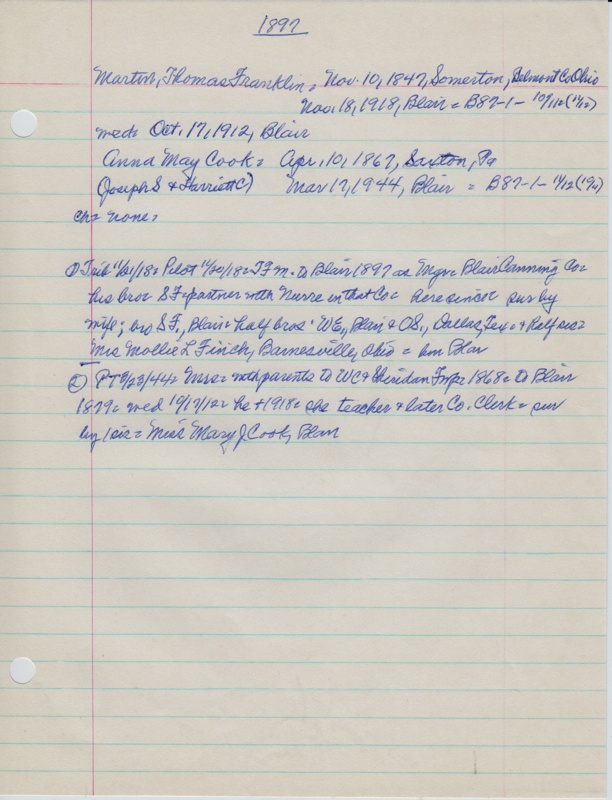 1897
Martin, Thomas Franklin = Nov. 10, 1847, Somerton, Belmont Co, Ohio
Nov. 18, 1918, Blair = B87-1-
wed = Oct. 17, 1912, Blair
Anna May Cook = Apr. 10, 1867, Saxton, Pa
(Joseph S & Harriett C) Mar 17, 1944, Blair = B87-1-
ch = none =
① Trib 11/21/18 = Pilot 11/20/18 = TF m. to Blair 1897 as Mgr = Blair Canning Co =
his bro = SF = partner with Nurre in that Co = here since = sur by
wife; bro SF, Blair = half bros = WE, Blair & OS, Dallas, Tex = & half sis =
Mrs Mollie L Finch, Barnesville, Ohio = bur Blair
② PT 3/23/44 = Mrs = with parents to WC & Sheridan Twp = 1868 = to Blair
1879 = wed 10/17/12 = he + 1918 = she teacher & later Co. Clerk = sur
by 1 sis = Miss Mary J Cook, Blair